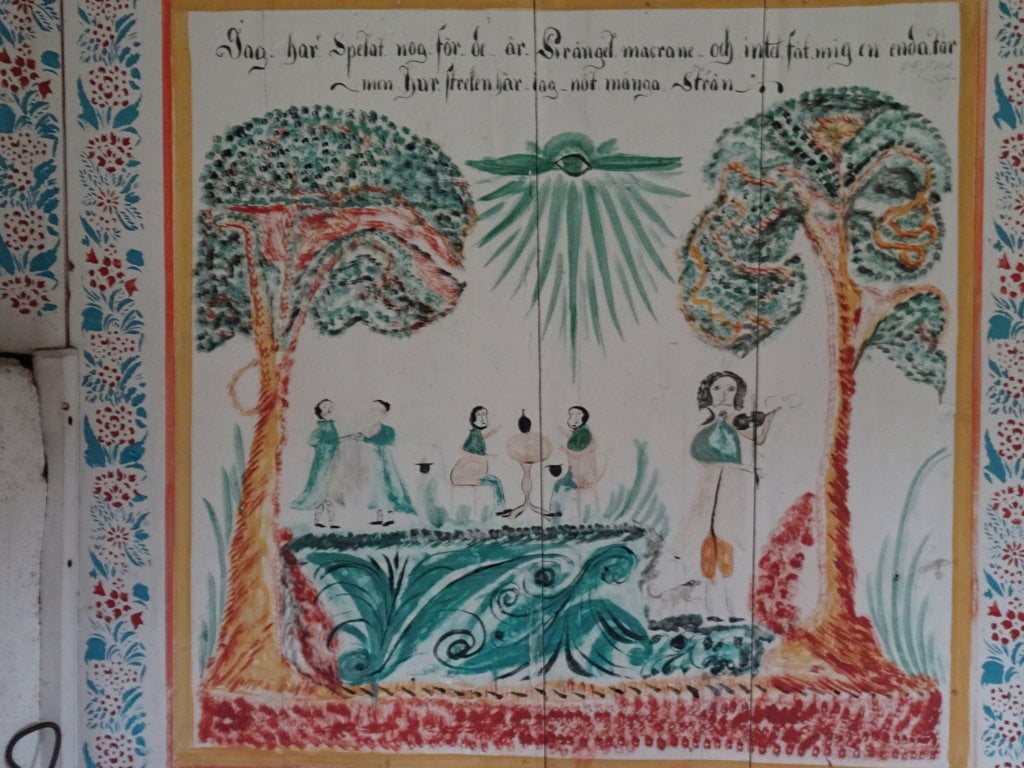 Jag har Spelat nog för de är Krångel macrane och intet fåt mig en enda tår
men hur streten här jag nöt många Strån